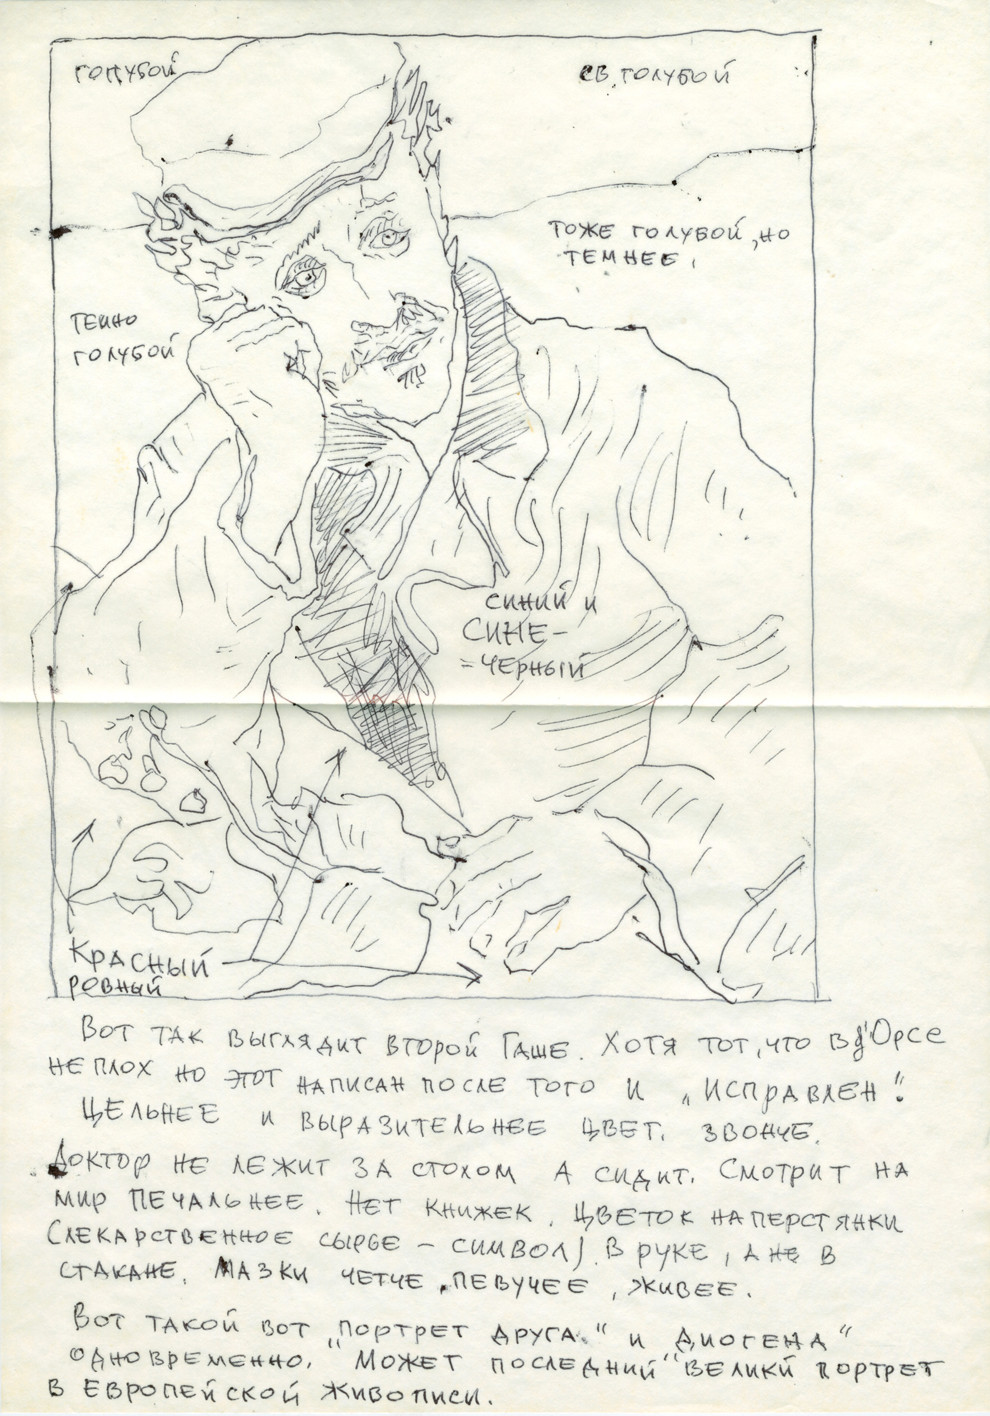 ГОЛУБОЙ
СВ. ГОЛУБОЙ
ТОЖЕ ГОЛУБОЙ, НО
ТЕМНЕЕ.
ТЕМНО
ГОЛУБОЙ
СИНИЙ И
СИНЕ-
=ЧЕРНЫЙ
КРАСНЫЙ
РОВНЫЙ
ВОТ ТАК ВЫГЛЯДИТ ВТОРОЙ ГАШЕ. ХОТЯ ТОТ, ЧТО В Д'ОРСЕ
НЕ ПЛОХ НО ЭТОТ НАПИСАН ПОСЛЕ ТОГО И „ИСПРАВЛЕН".
ЦЕЛЬНЕЕ И ВЫРАЗИТЕЛЬНЕЕ ЦВЕТ. ЗВОНЧЕ.
ДОКТОР НЕ ЛЕЖИТ ЗА СТОЛОМ А СИДИТ. СМОТРИТ НА
МИР ПЕЧАЛЬНЕЕ. НЕТ КНИЖЕК. ЦВЕТОК НАПЕРСТЯНКИ
(ЛЕКАРСТВЕННОЕ СЫРЬЕ – СИМВОЛ) В РУКЕ, А НЕ В
СТАКАНЕ. МАЗКИ ЧЕТЧЕ, ПЕВУЧЕЕ, ЖИВЕЕ.
ВОТ ТАКОЙ ВОТ „ПОРТРЕТ ДРУГА" И ДИОГЕНА"
ОДНОВРЕМЕННО. "МОЖЕТ ПОСЛЕДНИЙ" ВЕЛИКИЙ ПОРТРЕТ
В ЕВРОПЕЙСКОЙ ЖИВОПИСИ.